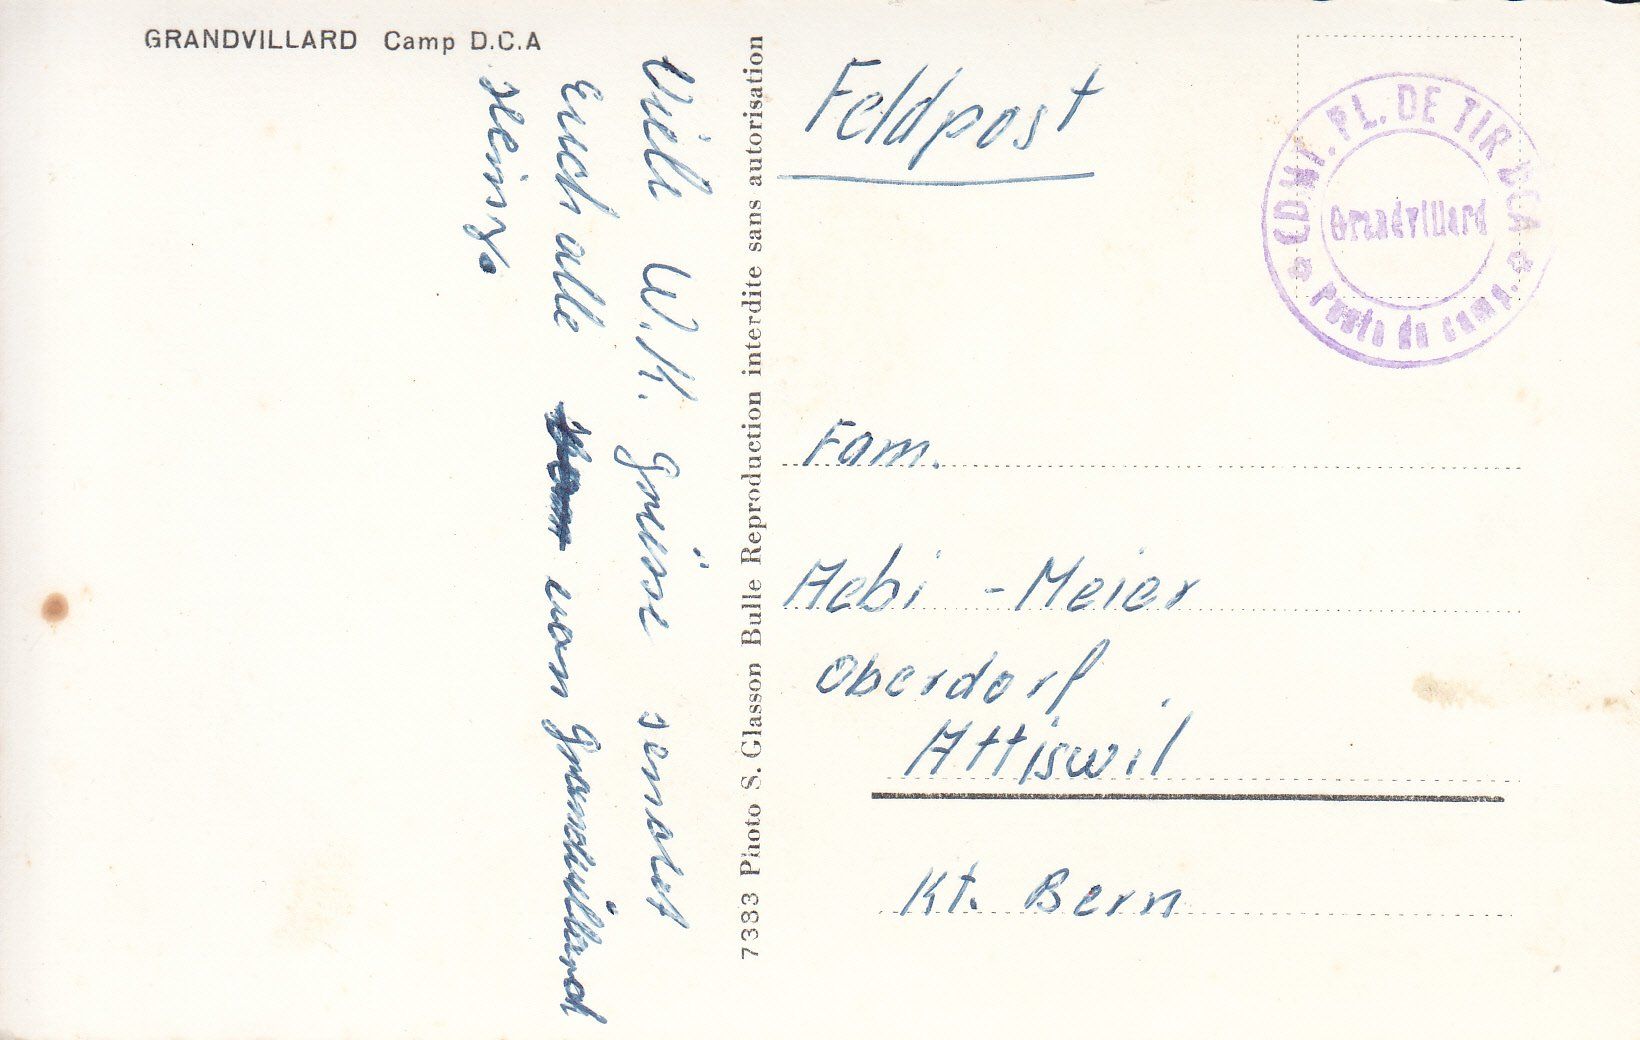 GRANDVILLARD Camp D.C.A
Viele W.K. Grüsse sendet
Euch alle von Grandvillard
Heinz.
7383 Photo S. Glasson Bulle Reproduction interdite sans autorisation
Feldpost
CDMT. PL. DE TIR DCA
Grandvillard
* Poste de camp. *
Fam.
Aebi - Meier
Oberdorf
Attiswil
Kt. Bern